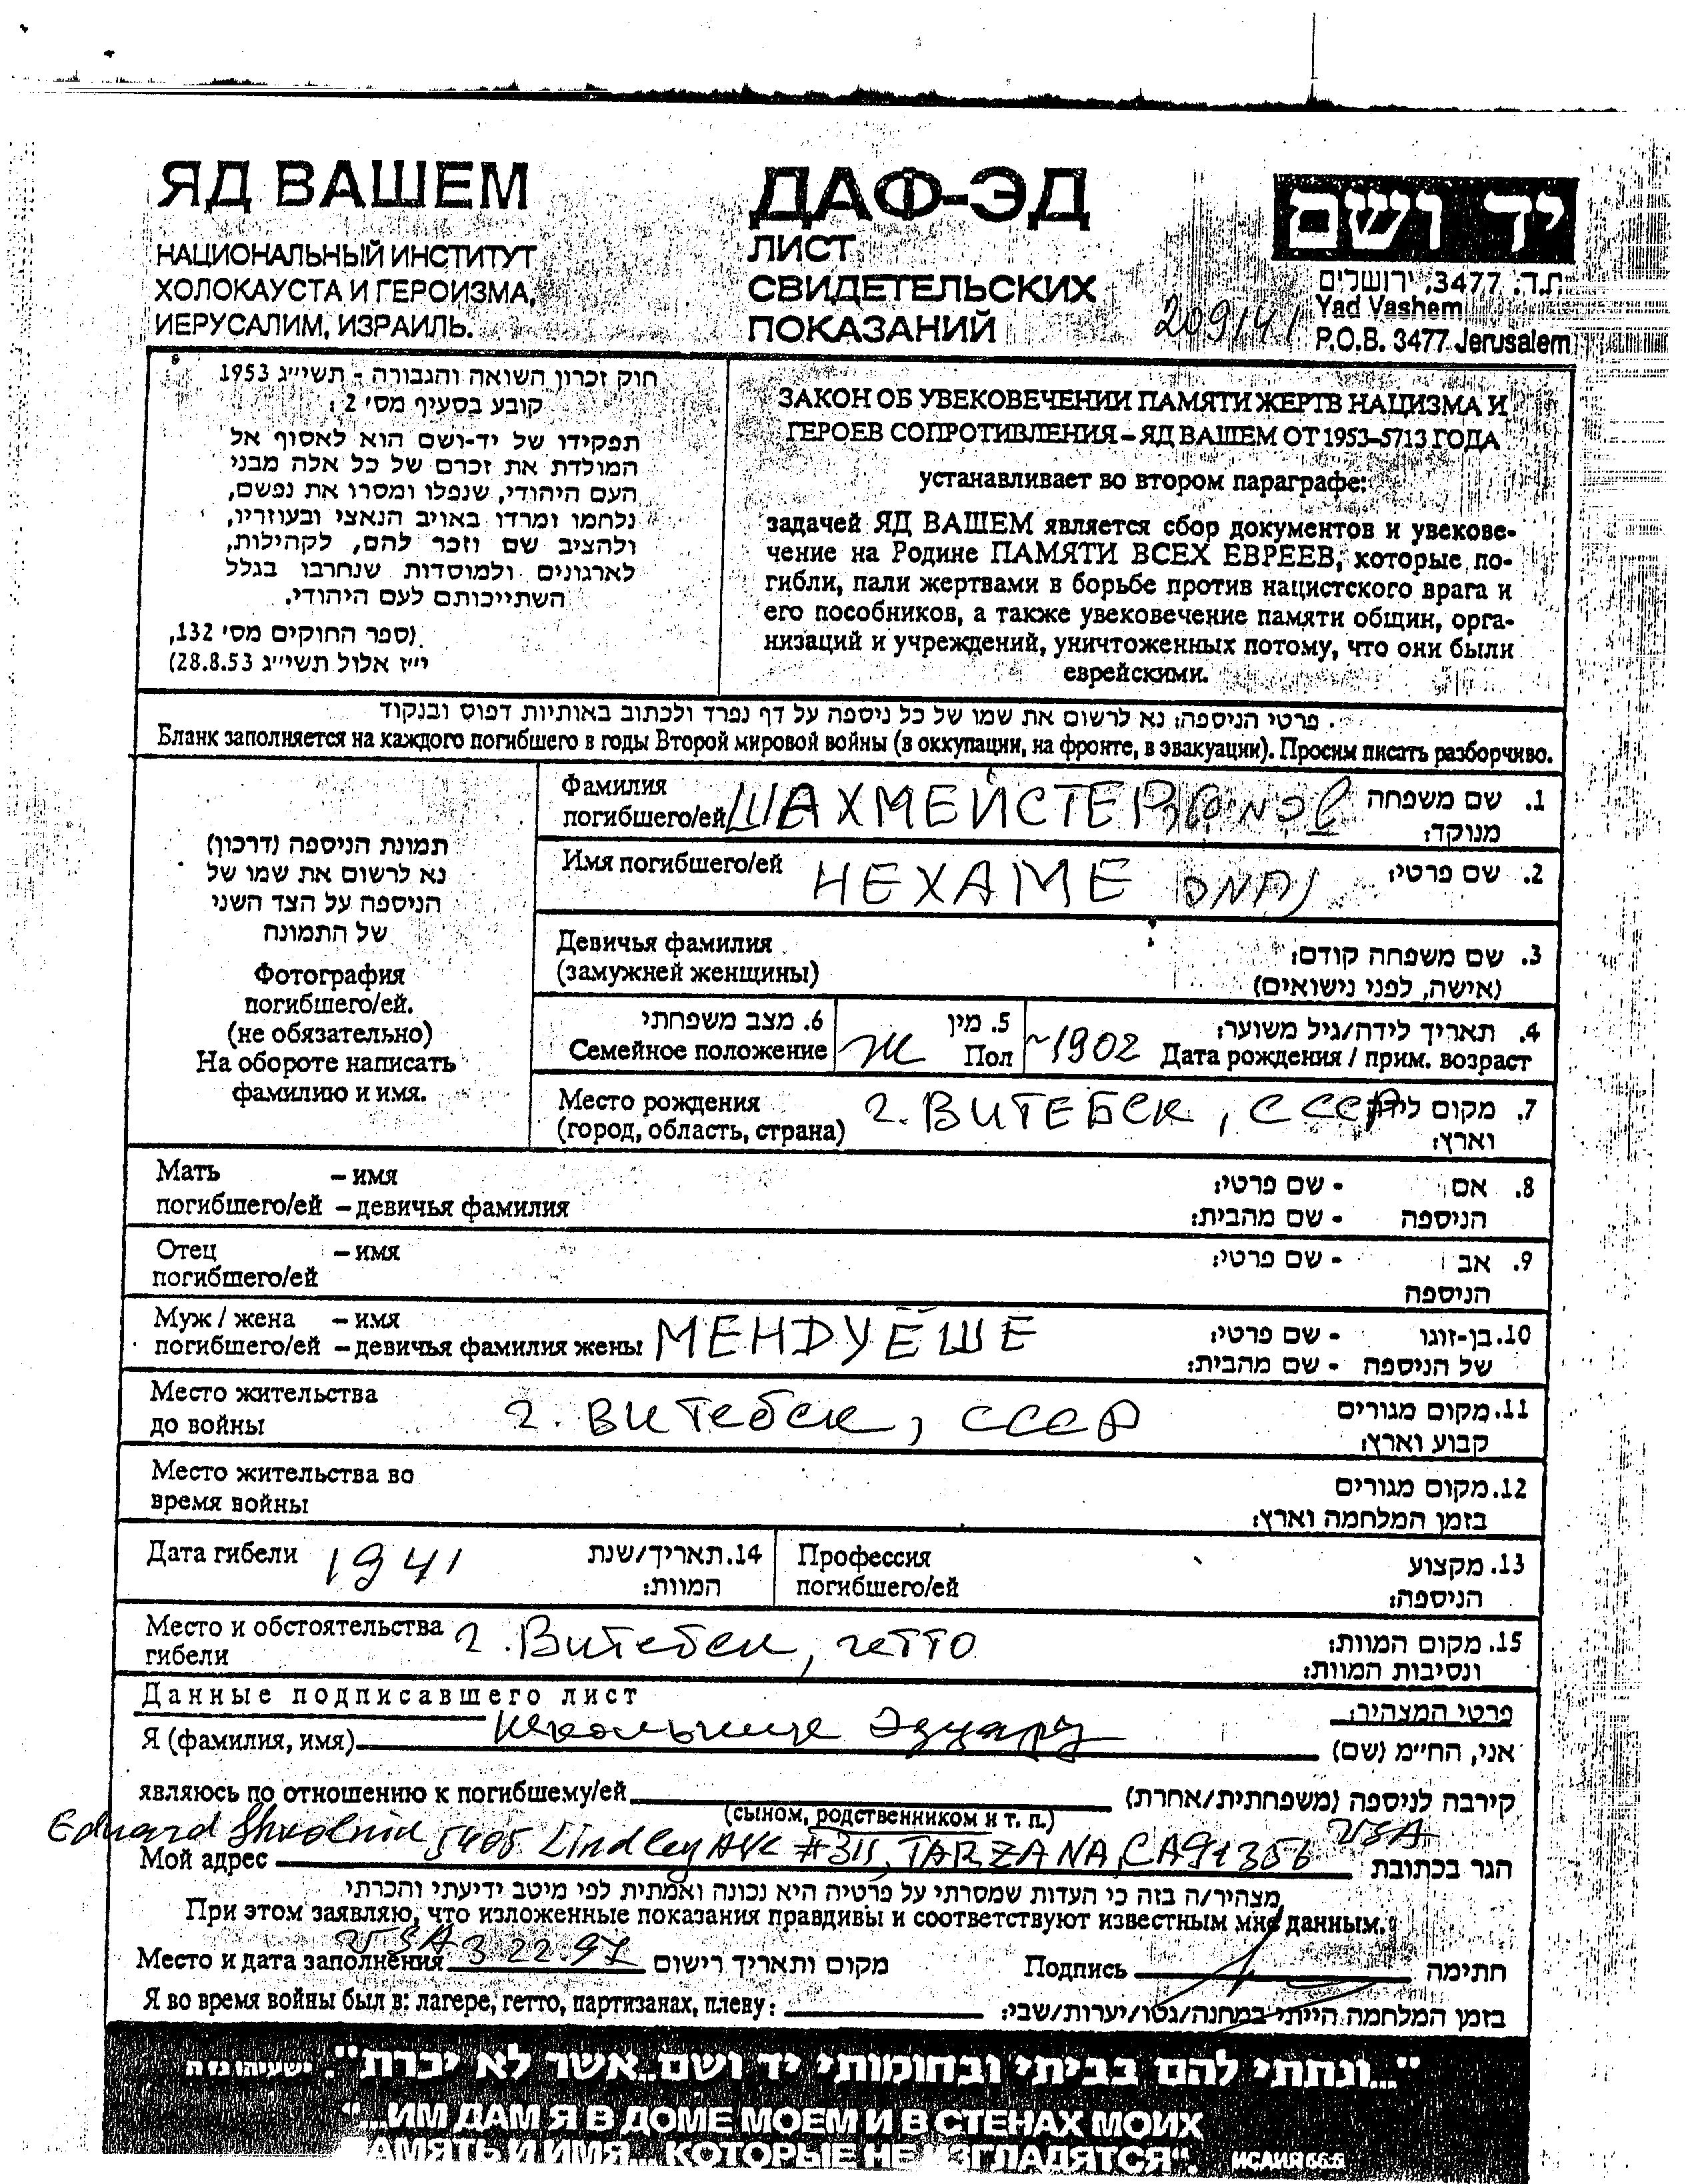 ЯД ВАШЕМ
НАЦИОНАЛЬНЫЙ ИНСТИТУТ
ХОЛОКАУСТА И ГЕРОИЗМА,
ИЕРУСАЛИМ, ИЗРАИЛЬ.
ДАФ-ЭД
ЛИСТ
СВИДЕТЕЛЬСКИХ
ПОКАЗАНИЙ
209141
יד ושם
ת.ד. 3477, ירושלים
Yad Vashem
P.O.B. 3477 Jerusalem
חוק זכרון השואה והגבורה - תשי״ג 1953
קובע בסעיף מס׳ 2:
תפקידו של יד-ושם הוא לאסוף אל
המולדת את זכרם של כל אלה מבני
העם היהודי, שנפלו ומסרו את נפשם,
נלחמו ומרדו באויב הנאצי ובעוזריו,
ולהציב שם וזכר להם, לקהילות,
לארגונים ולמוסדות שנחרבו בגלל
השתייכותם לעם היהודי.
(ספר החוקים מס׳ 132,
י״ז אלול תשי״ג 28.8.53)
ЗАКОН ОБ УВЕКОВЕЧЕНИИ ПАМЯТИ ЖЕРТВ НАЦИЗМА И
ГЕРОЕВ СОПРОТИВЛЕНИЯ – ЯД ВАШЕМ ОТ 1953–5713 ГОДА
устанавливает во втором параграфе:
задачей ЯД ВАШЕМ является сбор документов и увекове-
чение на Родине ПАМЯТИ ВСЕХ ЕВРЕЕВ, которые по-
гибли, пали жертвами в борьбе против нацистского врага и
его пособников, а также увековечение памяти общин, орга-
низаций и учреждений, уничтоженных потому, что они были
еврейскими.
פרטי הניספה: נא לרשום את שמו של כל ניספה על דף נפרד ולכתוב באותיות דפוס ובנקוד
Бланк заполняется на каждого погибшего в годы Второй мировой войны (в оккупации, на фронте, в эвакуации). Просим писать разборчиво.
תמונת הניספה (דרכון)
נא לרשום את שמו של
הניספה על הצד השני
של התמונה
Фотография
погибшего/ей.
(не обязательно)
На обороте написать
фамилию и имя.
Фамилия
погибшего/ей ШАХМЕЙСТЕР
1. שם משפחה
מנוקד:
Имя погибшего/ей НЕХАМЕ נחמה 2. שם פרטי:
Девичья фамилия
(замужней женщины)
3. שם משפחה קודם:
(אישה, לפני נישואים)
6. מצב משפחתי
Семейное положение
5. מין
Ж Пол
4. תאריך לידה/גיל משוער:
~1902 Дата рождения / прим. возраст
Место рождения
(город, область, страна) г. ВИТЕБСК, СССР
7. מקום לידה
וארץ:
Мать – имя
погибшего/ей – девичья фамилия
8. אם - שם פרטי:
הניספה - שם מהבית:
Отец – имя
погибшего/ей
9. אב - שם פרטי:
הניספה
Муж / жена – имя
погибшего/ей – девичья фамилия жены МЕНДУЕШЕ
10. בן-זוגו - שם פרטי:
של הניספה - שם מהבית:
Место жительства
до войны г. Витебск, СССР
11. מקום מגורים
קבוע וארץ:
Место жительства во
время войны
12. מקום מגורים
בזמן המלחמה וארץ:
Дата гибели 1941
14. תאריך/שנת
המוות:
Профессия
погибшего/ей
13. מקצוע
הניספה:
Место и обстоятельства
гибели г. Витебск, гетто
15. מקום המוות:
ונסיבות המוות:
Данные подписавшего лист
פרטי המצהיר:
Я (фамилия, имя) Школьник Эдуард אני, החי״מ (שם)
являюсь по отношению к погибшему/ей קירבה לניספה (משפחתית/אחרת)
(сыном, родственником и т. п.)
Eduard Shkolnik 5405 Lindley AVE #311, TARZANA, CA 91356 USA
Мой адрес הגר בכתובת
מצהיר/ה בזה כי העדות שמסרתי על פרטיה היא נכונה ואמתית לפי מיטב ידיעתי והכרתי
При этом заявляю, что изложенные показания правдивы и соответствуют известным мне данным.
Место и дата заполнения USA 3.22.97 מקום ותאריך רישום Подпись חתימה
Я во время войны был в: лагере, гетто, партизанах, плену: בזמן המלחמה הייתי במחנה/גטו/יערות/שבי:
״...ונתתי להם בביתי ובחומותי יד ושם...אשר לא יכרת״. ישעיהו נו ה
“...ИМ ДАМ Я В ДОМЕ МОЕМ И В СТЕНАХ МОИХ
ПАМЯТЬ И ИМЯ... КОТОРЫЕ НЕ ИЗГЛАДЯТСЯ”. ИСАИЯ 56:5